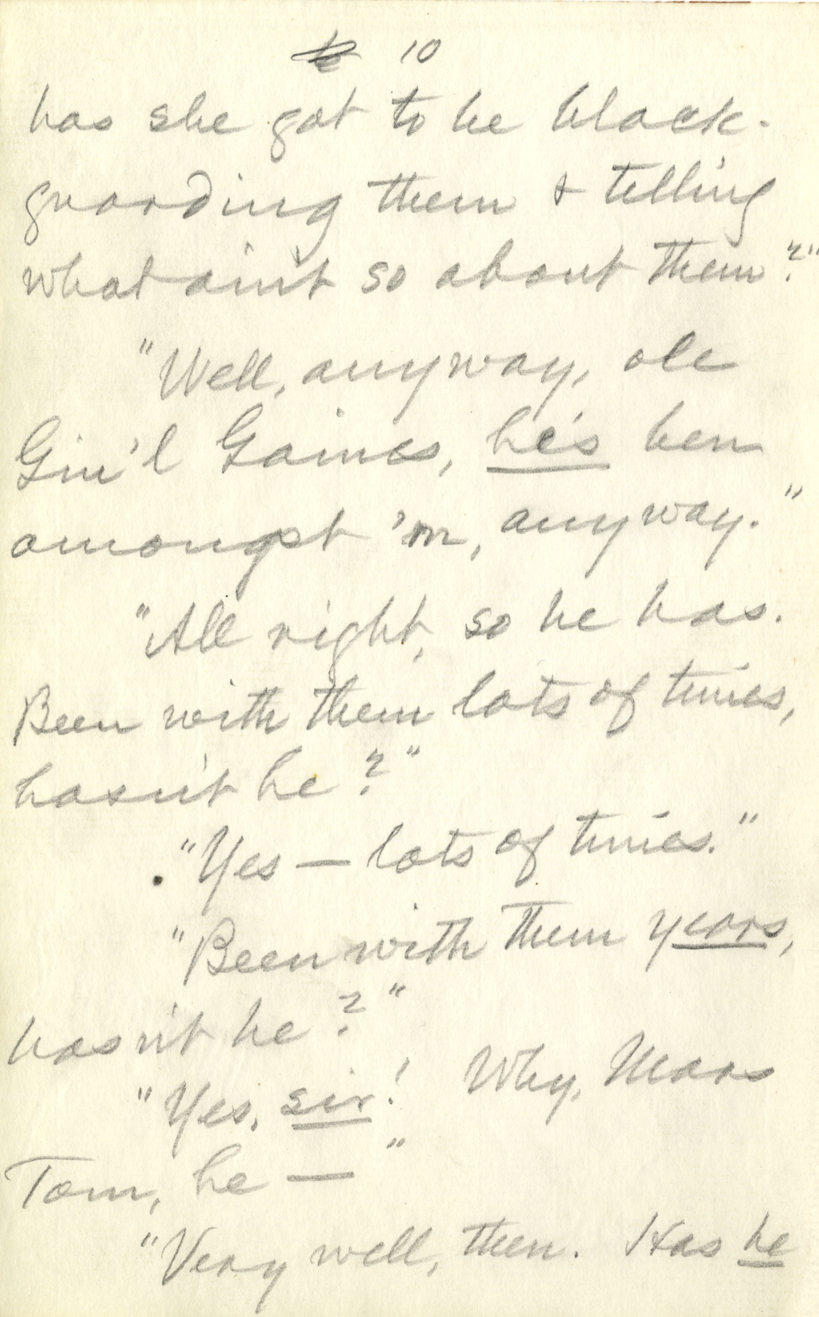 10
has she got to be black-
guarding them & telling
what ain't so about them?"
"Well, anyway, ole
Gin'l Gaines, he's ben
amongst 'm, anyway."
"All right, so he has.
Been with them lots of times,
hasn't he?"
"Yes — lots of times."
"Been with them years,
hasn't he?"
"Yes, sir! Why, Mars
Tom, he — "
"Very well, then. Has he